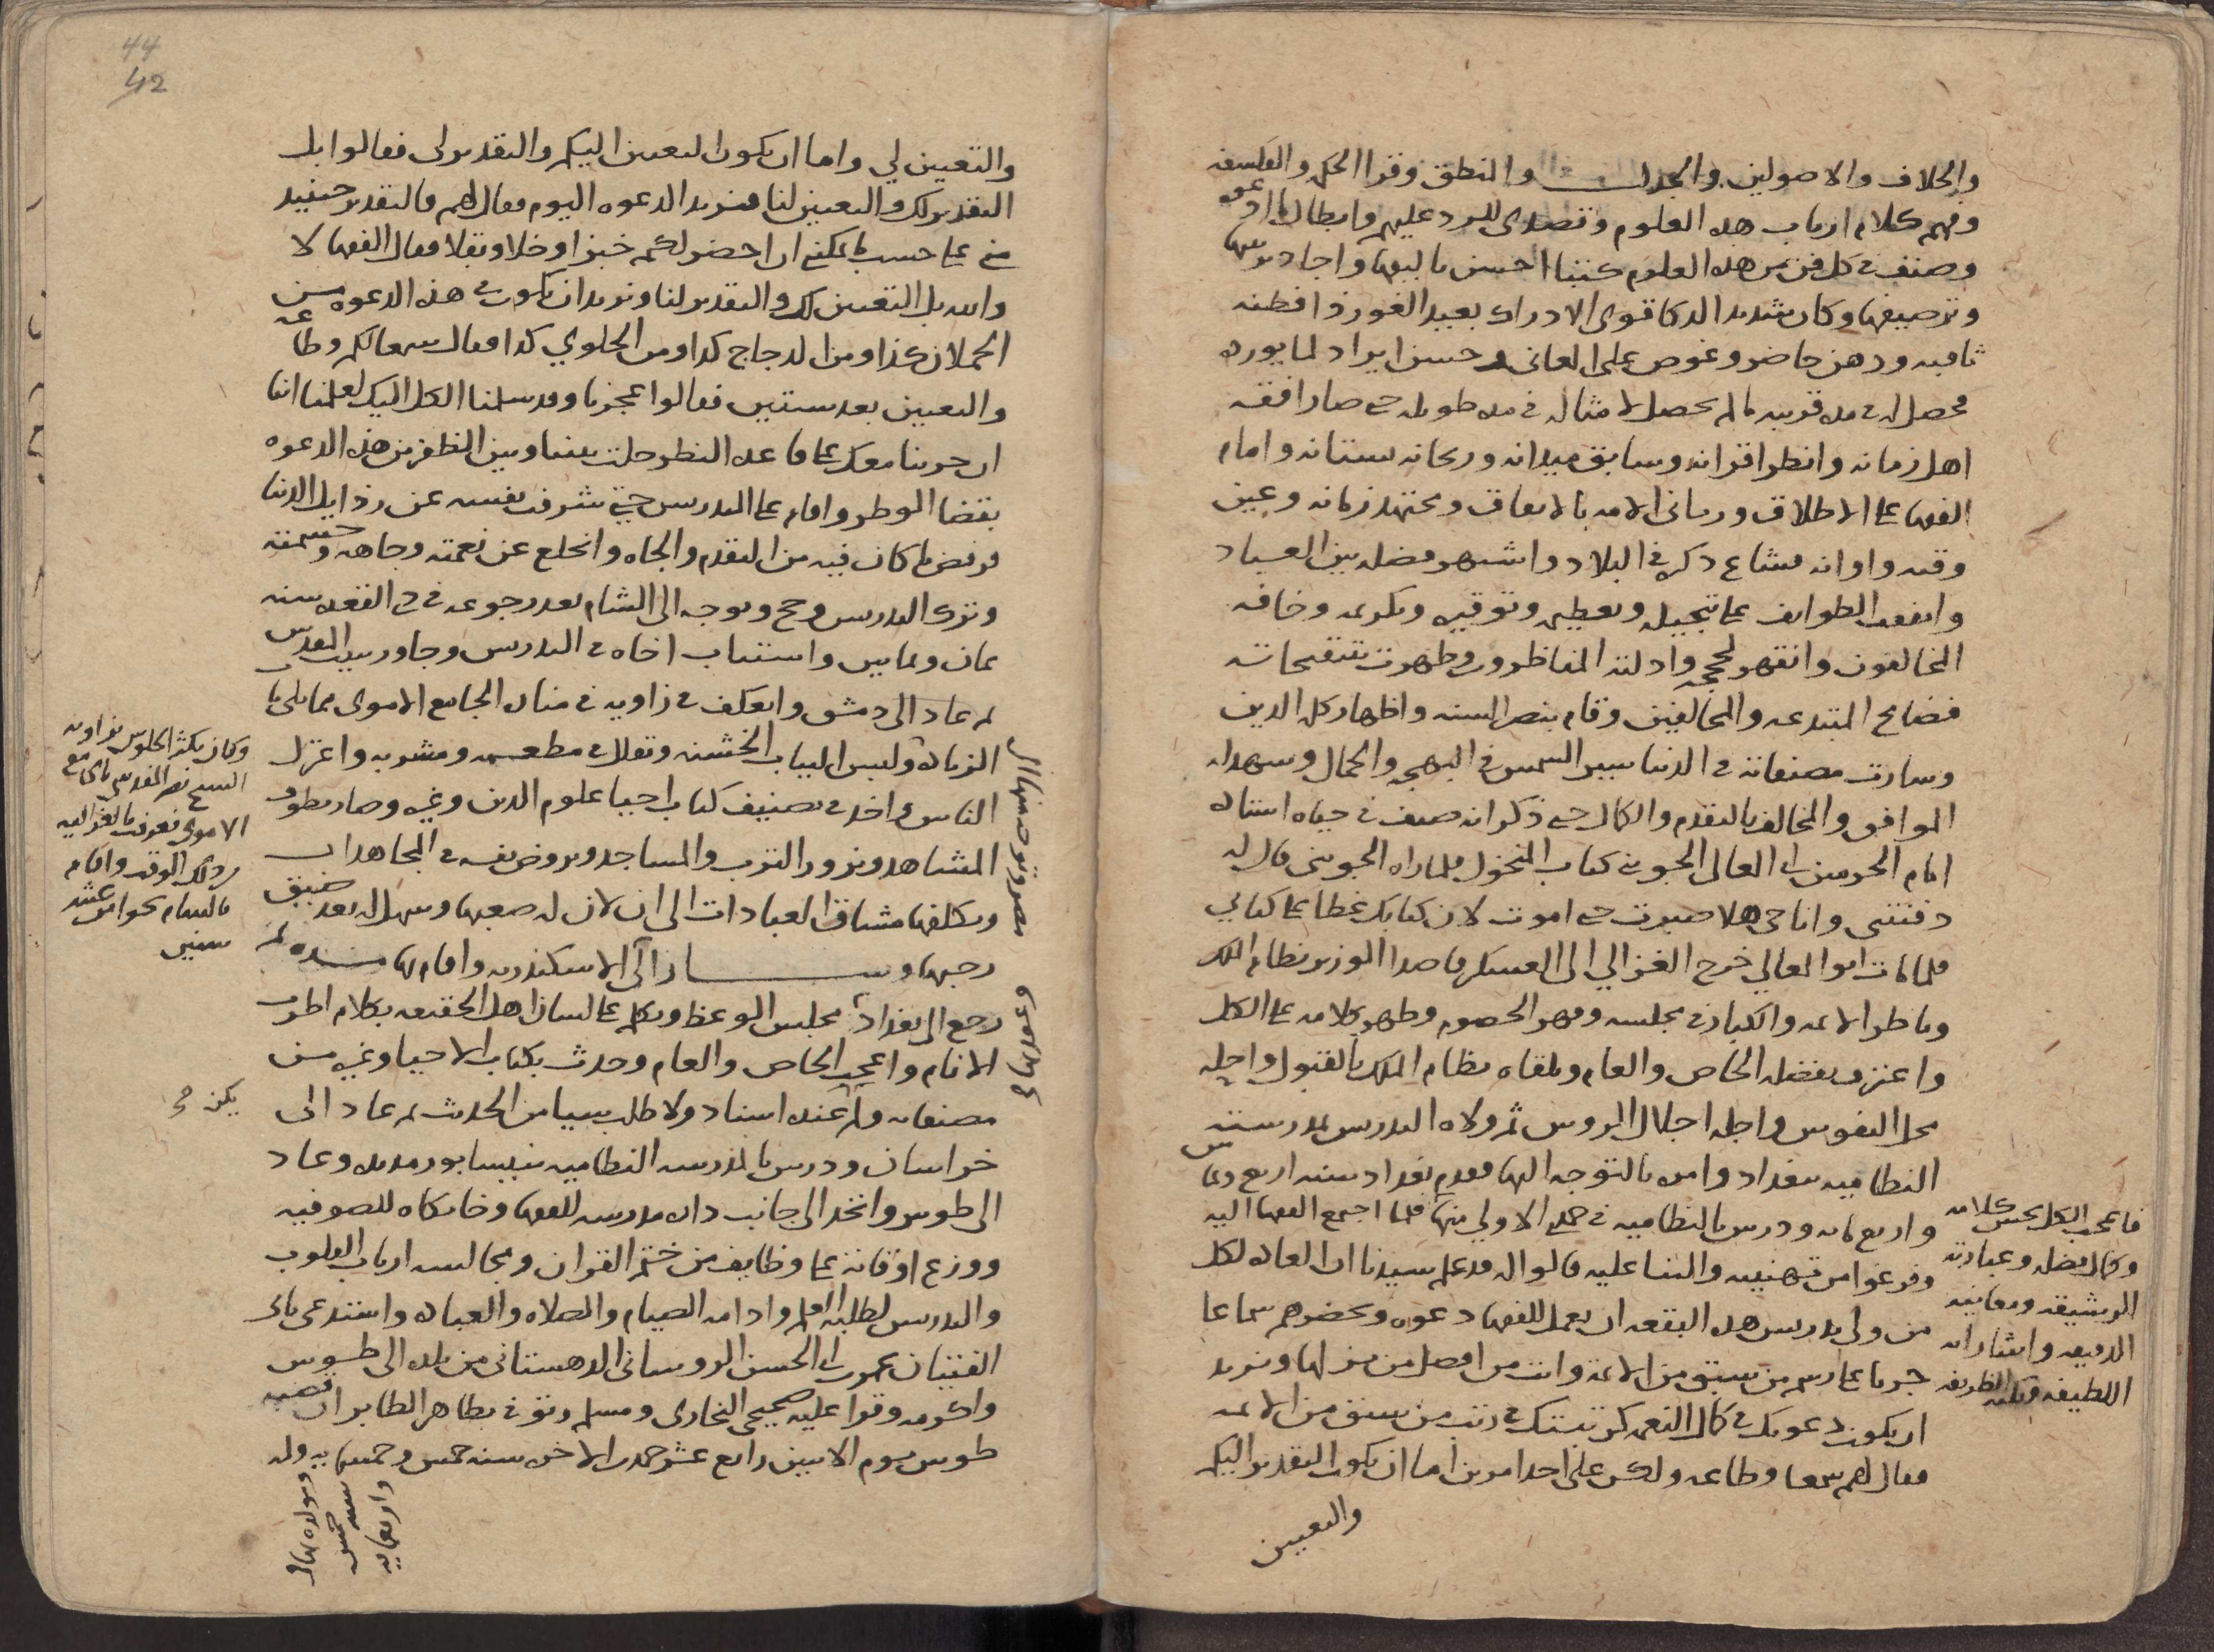 والخلاف والاصولين والجدل والمنطق وقرا الحكم والفلسفه
وفهم كلام ارباب هذه العلوم وتصدى للرد عليهم وابطال دعوـ
وصنف في كل فن من هذه العلوم كتبا احسن تاليفها واجاد ترتيبها
وترصيفها وكان شديد الذكا قوى الادراك بعيد الغور ذا فطنه
ثاقبه وذهن حاضر وغوص على المعانى وحسن ايراد لما يورده
فحصل له في مده قريبه ما لم يحصل لامثاله في مده طويله حتى صار افقه
اهل زمانه وانظر اقرانه وسابق ميدانه وريحانه بستانه وامام
الفقها على الاطلاق وربانى الامه بالاتفاق ومجتهد زمانه وعين
وقته واوانه فشاع ذكره في البلاد واشتهر فضله بين العباد
واتفقت الطوايف على تبجيله وتعظيمه وتوقيره وتكريمه وخافه
المخالفون وانقهر بحججه وادلته المناظرون وظهرت بتنقيحاته
فضايح المبتدعه والمخالفين وقام بنصر السنه واظهار كل الدين
وسارت مصنفاته في الدنيا سير الشمس في البهجه والجمال وشهد له
الموافق والمخالف بالتقدم والكمال حتى ذكر انه صنف في حياه استاذه
امام الحرمين ابى المعالى الجوينى كتاب المنخول فلما راه الجوينى قال له
دفنتنى وانا حى هلا صبرت حتى اموت لان كتابك غطا على كتابي
فلما مات ابو المعالي خرج الغزالي الى العسكر قاصدا الوزير نظام الملك
وناظر الايمه والكبار في مجلسه وقهر الخصوم وظهر كلامه على الكل
واعترف بفضله الخاص والعام وتلقاه نظام الملك بالقبول واحله
محل النفوس واجله اجلال الروس ثم ولاه التدريس بمدرسته
النظاميه ببغداد وامره بالتوجه اليها فقدم بغداد سنه اربع وثمانين
واربع مايه ودرس بالنظاميه في جمادى الاولى منها فلما اجتمع الفقها اليه
وفرغوا من تهنيته والثنا عليه قالوا له قد علم سيدنا ان العاده لكل
من ولى تدريس هذه البقعه ان يعمل للفقها دعوه ويحضرهم سماعا
جريا على رسم من سبق من الايمه وانت من افضل من نزلها ونريد
ان يكون دعوتك في كمال النعم كرتبتك في رتب من سبق من الايمه
فقال لهم سمعا وطاعه ولكن على احد امرين اما ان يكون التقدير اليكم
والتعيين
فاعجب الكل بحسن كلامه
وكمال فضله وعبارته
الرشيقه ومعانيه
الدقيقه واشاراته
اللطيفه ونكته الظريفه
44
42
والتعيين لي واما ان يكون التعيين اليكم والتقدير لى فقالوا بل
التقدير لك والتعيين لنا فنريد الدعوه اليوم فقال لهم فالتقدير حينيذ
منى على حسب ما يمكنني ان احضر لكم خبزا وخلا وبقلا فقال الفقها لا
والله بل التعيين لك والتقدير لنا ونريد ان يكون في هذه الدعوه من
الحملان كذا ومن الدجاج كذا ومن الحلوي كذا فقال سمعا لكم وطاعه
والتعيين بعد سنتين فقالوا عجزنا وقد سلمنا الكل اليك لعلمنا اننا
ان جرينا معك على قاعده النظر حلت بيننا وبين الظفر من هذه الدعوه
بقضا الوطر واقام على التدريس حتى شرفت نفسه عن رذايل الدنيا
فرفض ما كان فيه من التقدم والجاه وانخلع عن نعمته وجاهه وحشمته
وترك التدريس وحج وتوجه الى الشام بعد رجوعه في ذى القعده سنه
ثمان وثمانين واستناب اخاه في التدريس وجاور ببيت المقدس
ثم عاد الى دمشق واعتكف في زاويه في مناره الجامع الاموى مما يلى باب
الزياده ولبس الثياب الخشنه وتقلل في مطعمه ومشربه واعتزل
الناس واخذ في تصنيف كتاب احيا علوم الدين وغيره وصار يطوف
المشاهد ويزور الترب والمساجد ويروض نفسه في المجاهدات
ويكلفها مشاق العبادات الى ان لان له صعبها وسهل له بعد ضيق
رحبها وسار الى الاسكندريه واقام بها مده ثم
رجع الى بغداد مجلس الوعظ وتكلم على لسان اهل الحقيقه بكلام اطرب
الانام واعجب الخاص والعام وحدث بكتاب الاحيا وغيره من
مصنفاته ولم عنده اسناد ولا طلب شيا من الحديث ثم عاد الى
خراسان ودرس بالمدرسه النظاميه بنيسابور مديده وعاد
الى طوس واتخذ الى جانب داره مدرسه للفقها وخانكاه للصوفيه
ووزع اوقاته على وظايف من ختم القران ومجالسه ارباب القلوب
والتدريس لطلبه العلم وادامه الصيام والصلاه والعباده واستدعى بابى
الفتيان عمر بن ابى الحسن الروساى الدهستانى من بلده الى طوس
واكرمه وقرا عليه صحيحى البخارى ومسلم وتوفى بظاهر الطابران قصبه
طوس يوم الاثنين رابع عشر جمادى الاخره سنه خمس وخمسمايه وله
وكان يكثر الجلوس في زاويه
الشيخ نصر المقدسى بالجامع
الاموى فعرفت بالغزاليه
من ذلك الوقت واقام
بالشام نحوا من عشر
سنين
يكن صح
ومولده سنه
خمسين
واربعمايه